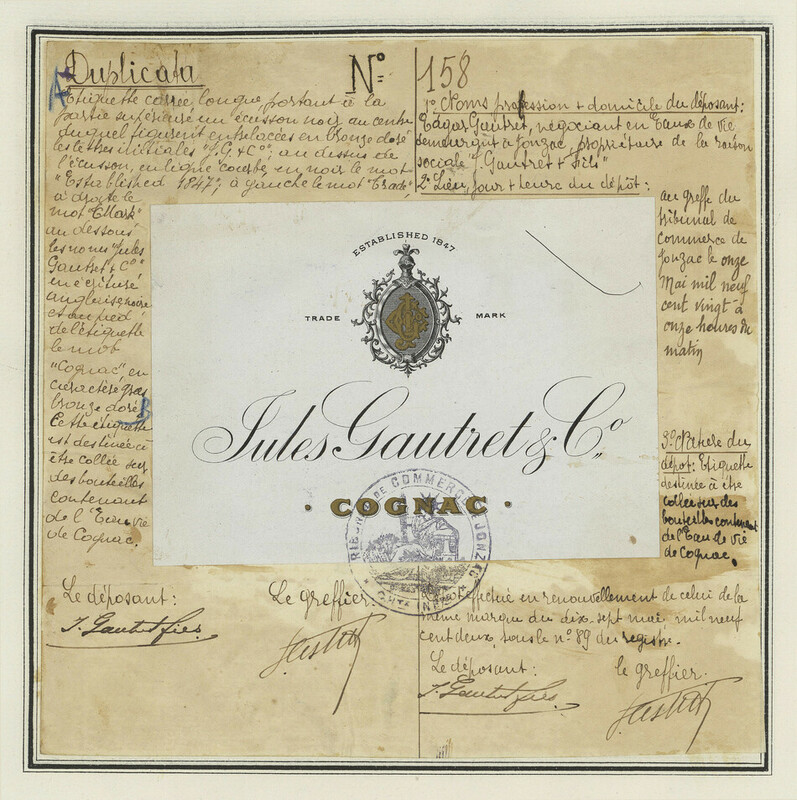 Duplicata
Nº 158
Etiquette carrée longue, portant à la
partie supérieure un écusson noir au centre
duquel figurent entrelacés en bronze doré
les lettres initiales "J. G. & Cº"; au dessus de
l'écusson, en ligne courbe, en noir le mot
"Established 1847"; à gauche le mot "Trade"
à droite le
mot "Mark"
au dessous
les noms Jules
Gautret & Cº
en écriture
anglaise noire
et au pied
de l'étiquette
le mot
"Cognac", en
caractères gras
bronze doré.
Cette étiquette
est destinée à
être collée sur
des bouteilles
contenant
de l'Eau de vie
de Cognac.
A
B
Le déposant:
J. Gautret fils
Le greffier.
1º Noms profession + domicile du déposant:
Edgar Gautret, négociant en Eaux de vie
demeurant à Jonzac, propriétaire de la raison
sociale "J. Gautret + Fils"
2º Lieu, Jour + heure du dépôt:
au greffe du
tribunal de
commerce de
Jonzac le onze
Mai mil neuf
cent vingt à
onze heures du
matin
3º Nature du
dépôt: Etiquette
destinée à être
collée sur des
bouteilles contenant
de l'Eau de vie
de Cognac.
effectué en renouvellement de celui de la
même marque du dix-sept mai, mil neuf
cent deux, sous le nº 89 du registre.
Le déposant:
J. Gautret fils
le greffier.
ESTABLISHED 1847
TRADE MARK
Jules Gautret & Cº.
· COGNAC ·
TRIBUNAL DE COMMERCE JONZAC